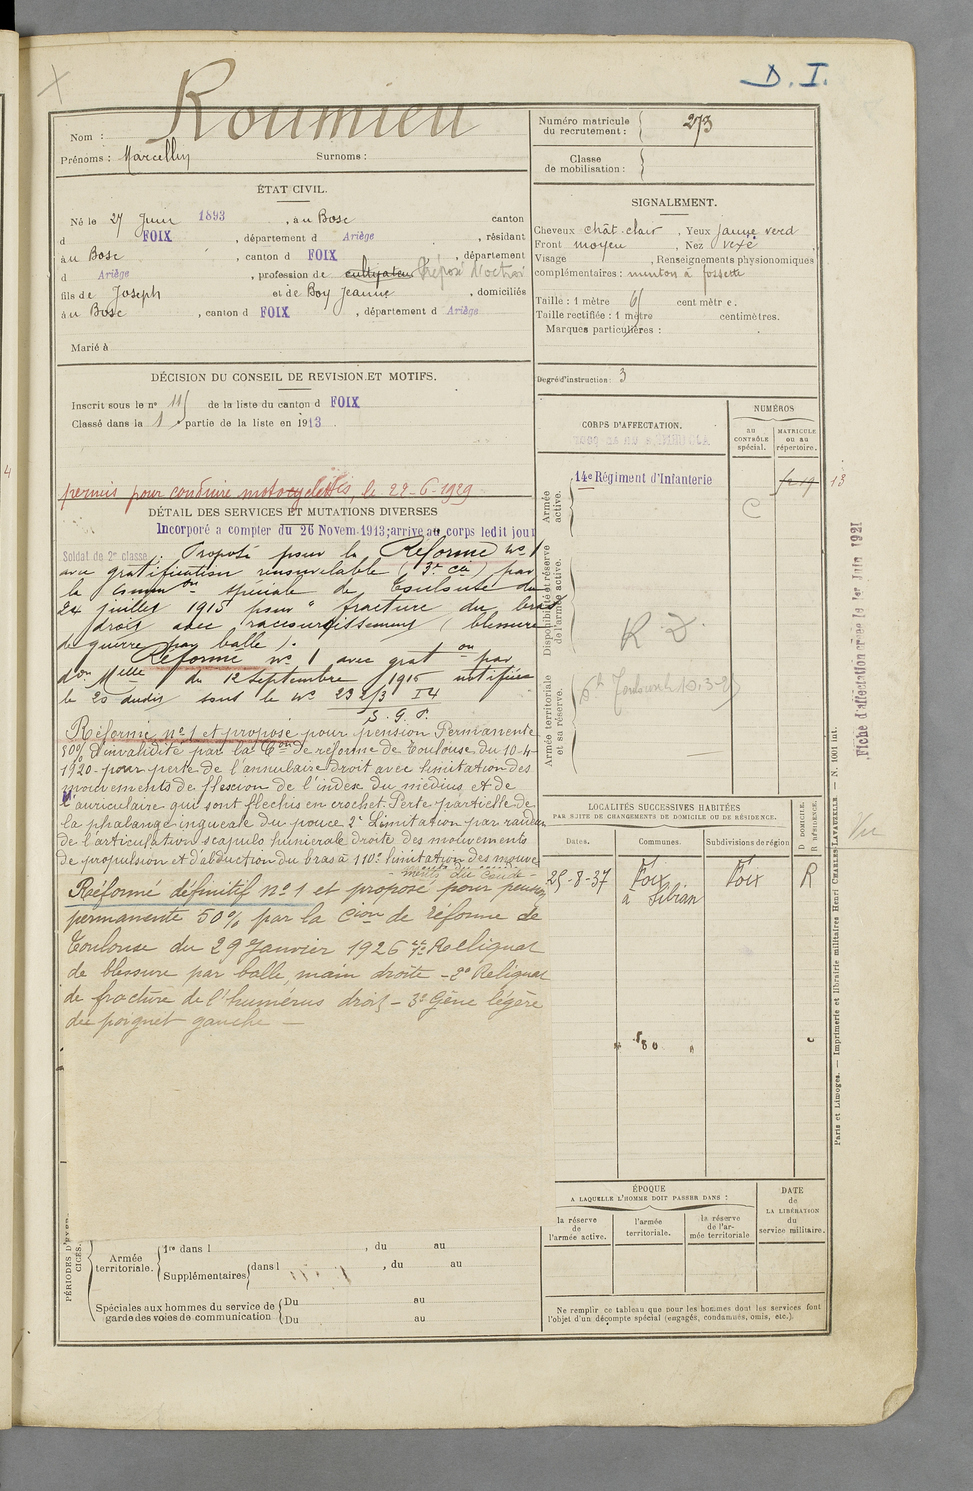 D. I.
Roumieu
Nom :
Prénoms : Marcellin Surnoms :
Numéro matricule du recrutement : 273
Classe de mobilisation :
ÉTAT CIVIL.
Né le 27 Juin 1893, à u Bosc canton
d FOIX, département d Ariège, résidant
à u Bosc, canton d FOIX, département
d Ariège, profession de cultivateur Préposé d'octroi
fils de Joseph et de Boy Jeanne, domiciliés
à u Bosc, canton d FOIX, département d Ariège
Marié à
SIGNALEMENT.
Cheveux chât. clair. Yeux jaune verd
Front moyen, Nez vexé
Visage, Renseignements physionomiques
complémentaires : menton à fossette
Taille : 1 mètre 61 centimètre.
Taille rectifiée : 1 mètre centimètres.
Marques particulières :
Degré d'instruction : 3
DÉCISION DU CONSEIL DE REVISION ET MOTIFS.
Inscrit sous le n° 115 de la liste du canton d FOIX
Classé dans la 1 partie de la liste en 1913.
permis pour conduire motocyclettes, le 22-6-1929
DÉTAIL DES SERVICES ET MUTATIONS DIVERSES
Incorporé a compter du 26 Novem. 1913; arrivé au corps ledit jour
Soldat de 2e classe. Proposé pour la Réforme n° 1
avec gratification renouvelable (3e cie) par
la Comm on spéciale de Toulouse du
24 juillet 1915 pour " fracture du bras
droit avec raccourcissement (blessure
de guerre par balle).
Réformé n° 1 avec grat on par
d on Melle du 12 septembre 1915 notifiée
le 20 dudit sous le n° 2323 I4
S. G. P.
Réformé n° 1 et proposé pour pension Permanente
50% d'invalidité par la Con de réforme de Toulouse du 10-4-
1920 - pour perte de l'annulaire droit avec limitation des
mouvements de flexion de l'index du médius et de
l'auriculaire qui sont fléchis en crochet. Perte partielle de
la phalange ingueale du pouce 2° Limitation par raideur
de l'articulation scapulo humérale droite des mouvements
de propulsion et d'abduction du bras à 110° limitation des mouve
ments du coude -
Réformé définitif n° 1 et proposé pour pension
permanente 50% par la Cion de réforme de
Toulouse du 29 Janvier 1926 1° Reliquat
de blessure par balle, main droite - 2° Reliquat
de fracture de l'humérus droit - 3° Gêne légère
du poignet gauche —
CORPS D'AFFECTATION.
NUMÉROS
au CONTRÔLE spécial.
MATRICULE ou au répertoire.
Armée active.
14e Régiment d'Infanterie
13
C
Disponibilité et réserve de l'armée active.
R. D.
Armée territoriale et sa réserve.
Fiche d'affectation créée le 1er Juin 1921
LOCALITÉS SUCCESSIVES HABITÉES
PAR SUITE DE CHANGEMENTS DE DOMICILE OU DE RÉSIDENCE.
Dates. Communes. Subdivisions de région D DOMICILE. R RÉSIDENCE.
25-8-37 Foix Foix R
à Sibian
PÉRIODES D'EXERCICES.
Armée territoriale.
1re dans l , du au
Supplémentaires dans l , du au
Spéciales aux hommes du service de garde des voies de communication
Du au
Du au
ÉPOQUE
A LAQUELLE L'HOMME DOIT PASSER DANS :
la réserve de l'armée active.
l'armée territoriale.
la réserve de l'armée territoriale
DATE de LA LIBÉRATION du service militaire.
Ne remplir ce tableau que pour les hommes dont les services font
l'objet d'un décompte spécial (engagés, condamnés, omis, etc.).
Paris et Limoges. — Imprimerie et librairie militaires Henri CHARLES-LAVAUZELLE. — N. 1001 int.